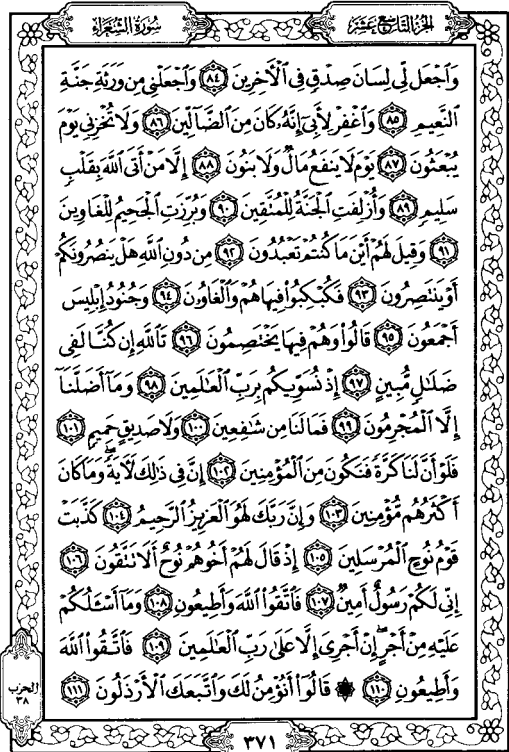 الجزء التاسع عشر
سورة الشعراء
وَٱجْعَل لِّى لِسَانَ صِدْقٍ فِى ٱلْأَخِرِينَ ٨٤ وَٱجْعَلْنِى مِن وَرَثَةِ جَنَّةِ
ٱلنَّعِيمِ ٨٥ وَٱغْفِرْ لِأَبِىٓ إِنَّهُۥ كَانَ مِنَ ٱلضَّآلِّينَ ٨٦ وَلَا تُخْزِنِى يَوْمَ
يُبْعَثُونَ ٨٧ يَوْمَ لَا يَنفَعُ مَالٌ وَلَا بَنُونَ ٨٨ إِلَّا مَنْ أَتَى ٱللَّهَ بِقَلْبٍ
سَلِيمٍ ٨٩ وَأُزْلِفَتِ ٱلْجَنَّةُ لِلْمُتَّقِينَ ٩٠ وَبُرِّزَتِ ٱلْجَحِيمُ لِلْغَاوِينَ
٩١ وَقِيلَ لَهُمْ أَيْنَ مَا كُنتُمْ تَعْبُدُونَ ٩٢ مِن دُونِ ٱللَّهِ هَلْ يَنصُرُونَكُمْ
أَوْ يَنتَصِرُونَ ٩٣ فَكُبْكِبُوا۟ فِيهَا هُمْ وَٱلْغَاوُۥنَ ٩٤ وَجُنُودُ إِبْلِيسَ
أَجْمَعُونَ ٩٥ قَالُوا۟ وَهُمْ فِيهَا يَخْتَصِمُونَ ٩٦ تَٱللَّهِ إِن كُنَّا لَفِى
ضَلَٰلٍ مُّبِينٍ ٩٧ إِذْ نُسَوِّيكُم بِرَبِّ ٱلْعَٰلَمِينَ ٩٨ وَمَآ أَضَلَّنَآ
إِلَّا ٱلْمُجْرِمُونَ ٩٩ فَمَا لَنَا مِن شَٰفِعِينَ ١٠٠ وَلَا صَدِيقٍ حَمِيمٍ ١٠١
فَلَوْ أَنَّ لَنَا كَرَّةً فَنَكُونَ مِنَ ٱلْمُؤْمِنِينَ ١٠٢ إِنَّ فِى ذَٰلِكَ لَأٓيَةً ۖ وَمَا كَانَ
أَكْثَرُهُم مُّؤْمِنِينَ ١٠٣ وَإِنَّ رَبَّكَ لَهُوَ ٱلْعَزِيزُ ٱلرَّحِيمُ ١٠٤ كَذَّبَتْ
قَوْمُ نُوحٍ ٱلْمُرْسَلِينَ ١٠٥ إِذْ قَالَ لَهُمْ أَخُوهُمْ نُوحٌ أَلَا تَتَّقُونَ ١٠٦
إِنِّى لَكُمْ رَسُولٌ أَمِينٌ ١٠٧ فَٱتَّقُوا۟ ٱللَّهَ وَأَطِيعُونِ ١٠٨ وَمَآ أَسْـَٔلُكُمْ
عَلَيْهِ مِنْ أَجْرٍ ۖ إِنْ أَجْرِىَ إِلَّا عَلَىٰ رَبِّ ٱلْعَٰلَمِينَ ١٠٩ فَٱتَّقُوا۟ ٱللَّهَ
وَأَطِيعُونِ ١١٠ ۞ قَالُوٓا۟ أَنُؤْمِنُ لَكَ وَٱتَّبَعَكَ ٱلْأَرْذَلُونَ ١١١
الحزب
٣٨
٣٧١